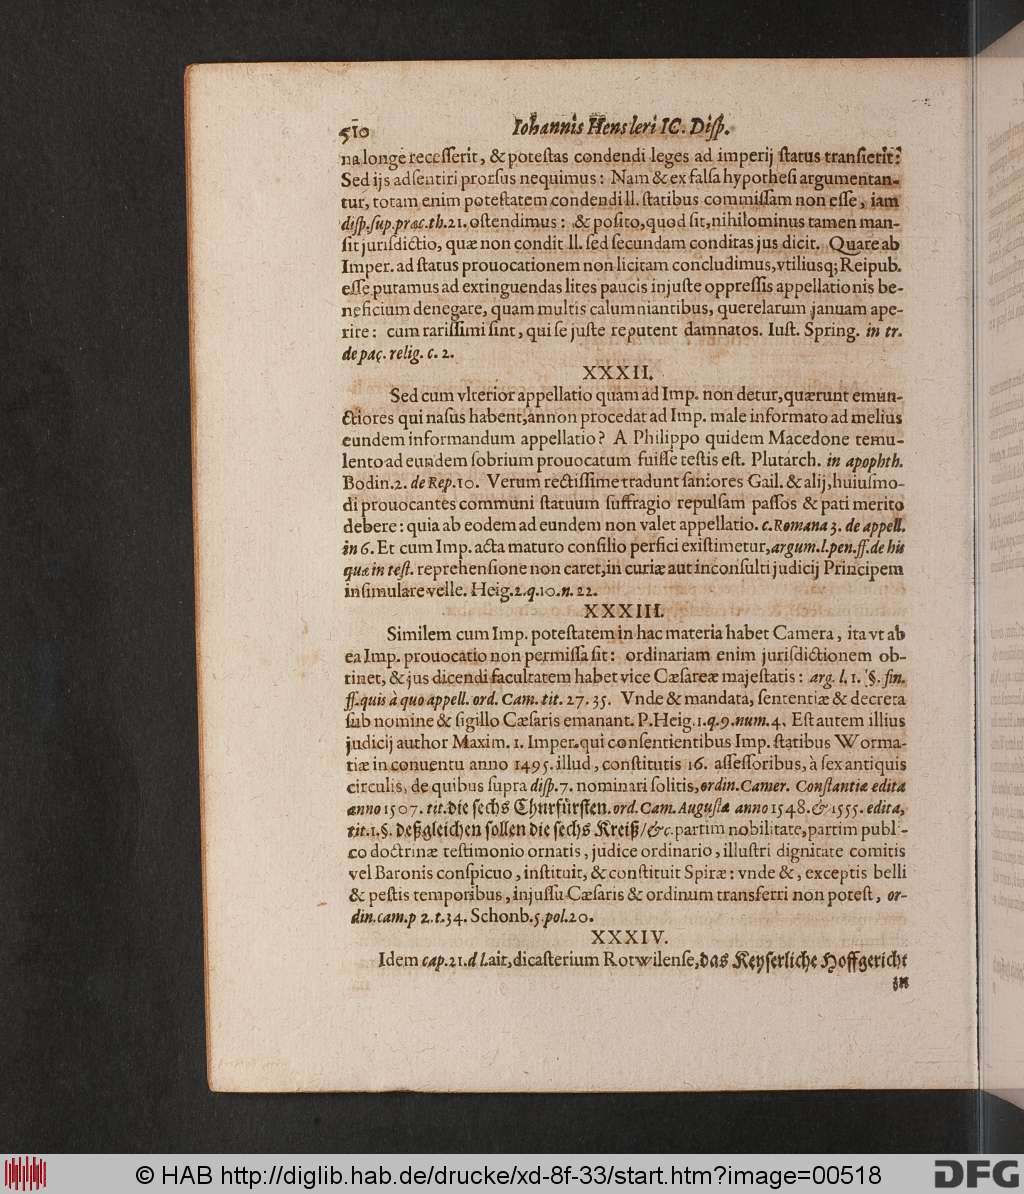 510 Iohannis Hensleri IC. Disp.
na longe recesserit, & potestas condendi leges ad imperij status transierit?
Sed ijs adsentiri prorsus nequimus: Nam & ex falsa hypothesi argumentan-
tur, totam enim potestatem condendi ll. statibus commissam non esse, iam
disp. sup. præc. th. 21. ostendimus: & posito, quod sit, nihilominus tamen man-
sit jurisdictio, quæ non condit ll. sed secundam conditas jus dicit. Quare ab
Imper. ad status prouocationem non licitam concludimus, vtiliusq; Reipub.
esse putamus ad extinguendas lites paucis injuste oppressis appellationis be-
neficium denegare, quam multis calumniantibus, querelarum januam ape-
rire: cum rarissimi sint, qui se juste reputent damnatos. Iust. Spring. in tr.
de paç. relig. c. 2.
XXXII.
Sed cum vlterior appellatio quam ad Imp. non detur, quærunt emun-
ctiores qui nasus habent, annon procedat ad Imp. male informato ad melius
eundem informandum appellatio? A Philippo quidem Macedone temu-
lento ad eundem sobrium prouocatum fuisse testis est. Plutarch. in apophth.
Bodin. 2. de Rep. 10. Verum rectissime tradunt saniores Gail. & alij, huiusmo-
di prouocantes communi statuum suffragio repulsam passos & pati merito
debere: quia ab eodem ad eundem non valet appellatio. c. Romana 3. de appell.
in 6. Et cum Imp. acta maturo consilio perfici existimetur, argum. l. pen. ff. de his
quæ in test. reprehensione non caret, in curiæ aut inconsulti judicij Principem
insimulare velle. Heig. 2. q. 10. n. 22.
XXXIII.
Similem cum Imp. potestatem in hac materia habet Camera, ita vt ab
ea Imp. prouocatio non permissa sit: ordinariam enim jurisdictionem ob-
tinet, & jus dicendi facultatem habet vice Cæsareæ majestatis: arg. l. 1. §. fin.
ff. quis à quo appell. ord. Cam. tit. 27. 35. Vnde & mandata, sententiæ & decreta
sub nomine & sigillo Cæsaris emanant. P. Heig. 1. q. 9. num. 4. Est autem illius
judicij author Maxim. 1. Imper. qui consentientibus Imp. statibus Worma-
tiæ in conuentu anno 1495. illud, constitutis 16. assessoribus, à sex antiquis
circulis, de quibus supra disp. 7. nominari solitis, ordin. Camer. Constantiæ edita
anno 1507. tit. die sechs Churfürsten. ord. Cam. Augustæ anno 1548. & 1555. edita,
tit. 1. §. deßgleichen sollen die sechs Kreiß/ &c. partim nobilitate, partim publi-
co doctrinæ testimonio ornatis, judice ordinario, illustri dignitate comitis
vel Baronis conspicuo, instituit, & constituit Spiræ: vnde &, exceptis belli
& pestis temporibus, injussu Cæsaris & ordinum transferri non potest, or-
din. cam. p 2. t. 34. Schonb. 5 pol. 20.
XXXIV.
Idem cap. 21. d l. ait, dicasterium Rotwilense, das Keyserliche Hoffgericht
zu
© HAB http://diglib.hab.de/drucke/xd-8f-33/start.htm?image=00518
DFG